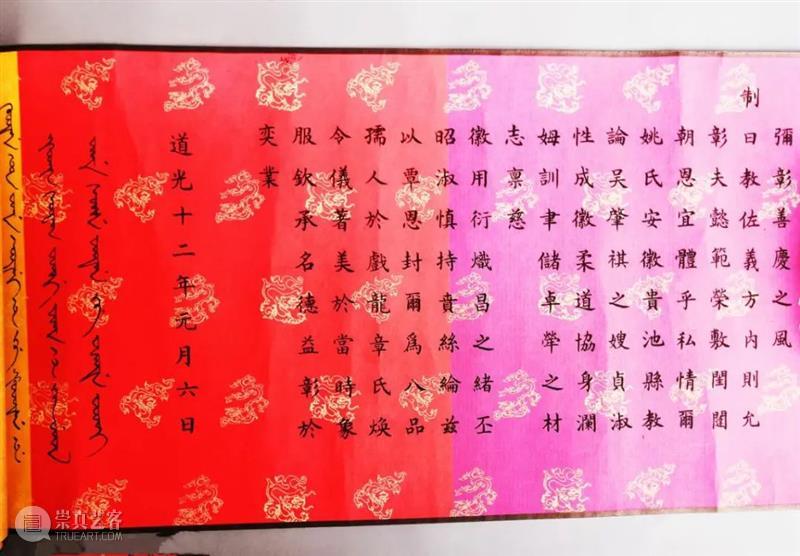 彌彰善慶之風
制曰教佐義方內則允
彰夫懿範榮敷閨閫
朝恩宜體乎私情爾
姚氏安徽貴池縣教
論吳肇祺之嫂貞淑
性成徽柔道協身瀾
姆訓聿儲卓犖之材
志稟慈
徽用衍熾昌之緒丕
昭淑慎持賁絲綸兹
以覃恩封爾爲八品
孺人於戲龍章氏煥
令儀著美於當時象
服欽承名德益彰於
奕業
道光十二年元月六日
崇真艺客
WWW.TRUEART.COM